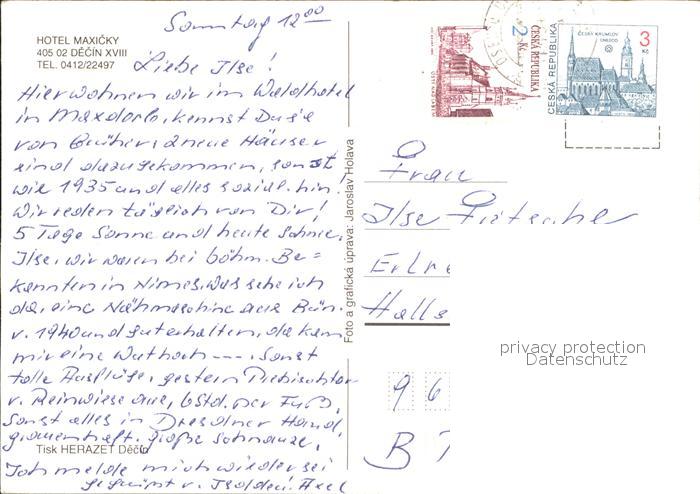 Sonntag 12⁰⁰
HOTEL MAXIČKY
405 02 DĚČÍN XVIII
TEL. 0412/22497
Liebe Ilse!
Hier wohnen wir im Waldhotel
in Maxdorf, kennst Du sie
von früher, 2 neue Häuser
sind dazugekommen, sonst
wie 1935 und alles sozial. hin!
Wir reden täglich von Dir!
5 Tage Sonne und heute Schnee.
Ilse, wir waren bei böhm. Be=
kannten in Nimes, was sehe ich
da, eine Nähmaschine aus
v. 1940 und guterhalten, da kam
mir eine Wut hoch ---. Sonst
tolle Ausflüge, gestern Prebischtor
v. Reinwiese aus, 6 Std. per Fuß,
Sonst alles in Dresdner Hand,
grauenhaft. große Schnauze!
Ich melde mich wieder sei
gegrüßt v. Isolde u. Axel
Tisk HERAZET Děčín
Foto a grafická úprava: Jaroslav Holava
ČESKÁ REPUBLIKA
2 Kč
ČESKÁ REPUBLIKA
ČESKÝ KRUMLOV
UNESCO
3
Kč
Frau
Ilse
Halls
privacy protection
Datenschutz
96